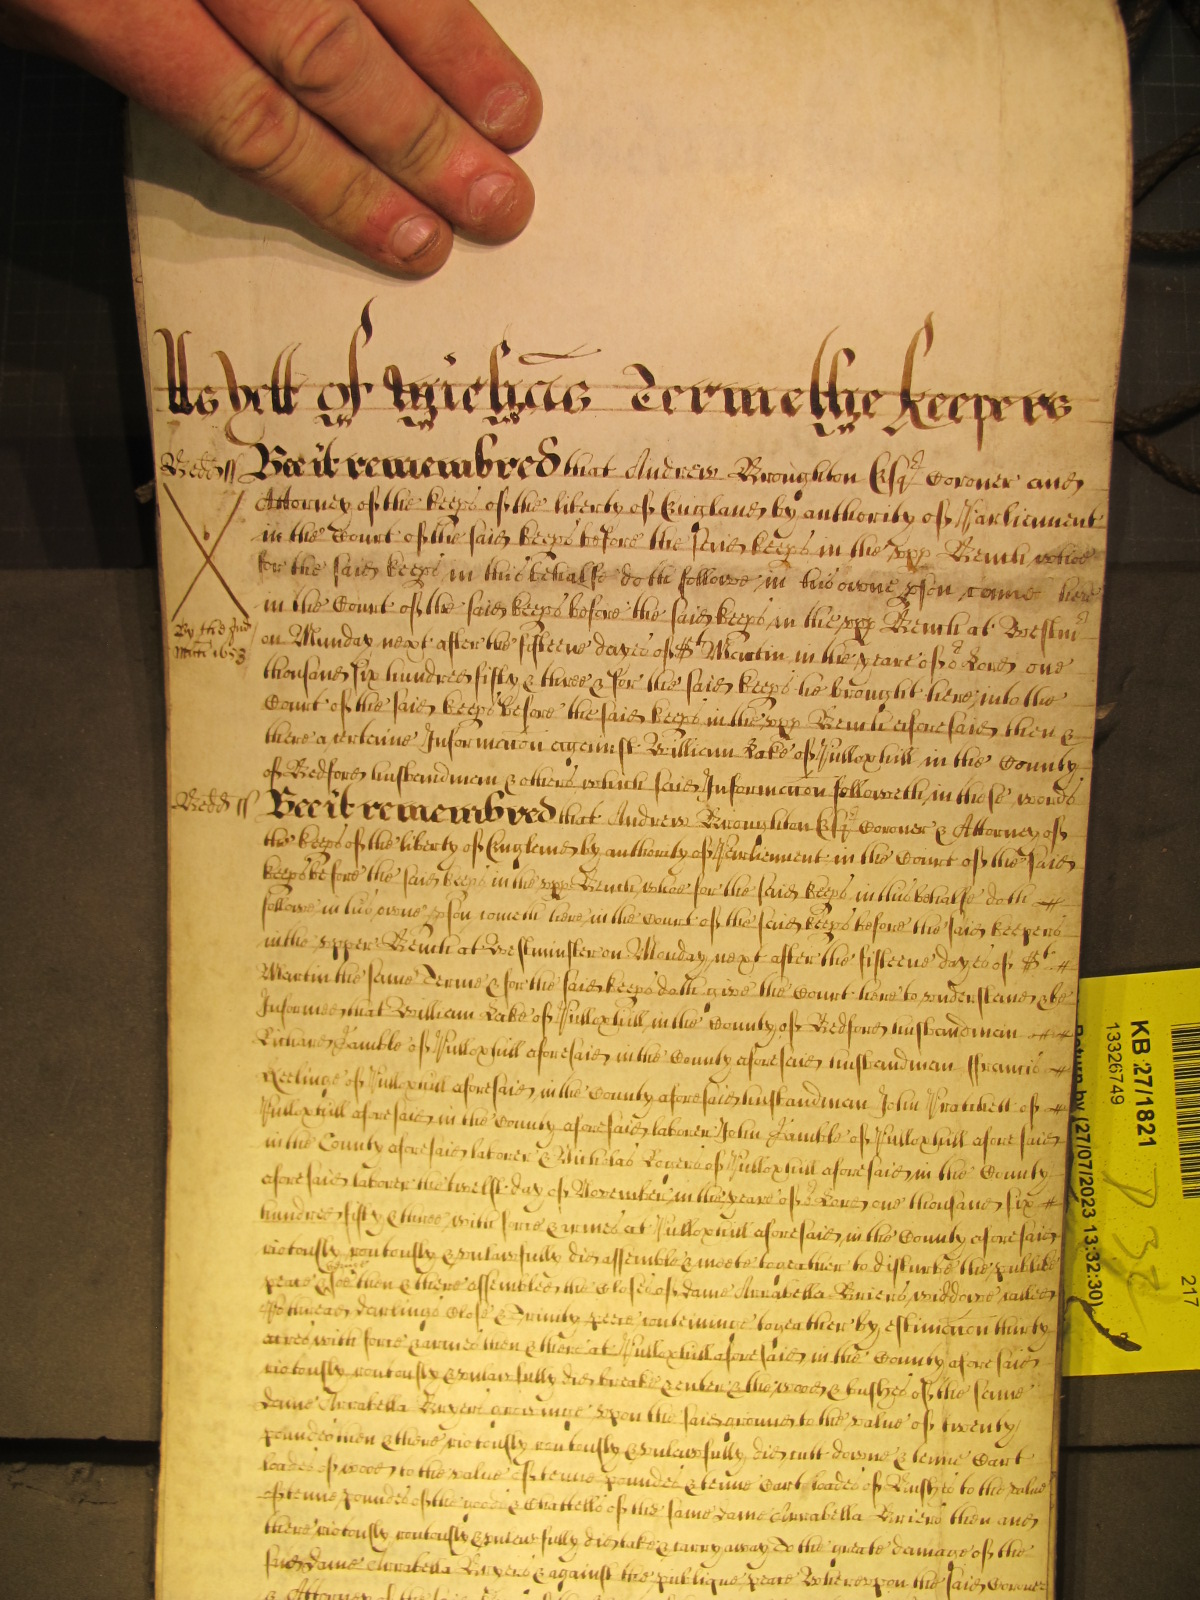 As yett of Michas Terme the keepers
Bedd ss Bee it remembred that Andrew Broughton Esqr Coroner and
Attorney of the keeps of the liberty of England by authority of Parliament
in the Court of the said keeps before the said keeps in the vpp Bench whoe
for the said keeps in this behalfe doth followe in his owne pson cometh here
in the Court of the said keeps before the said keeps in the vpp Bench at Westmr
By the
on Munday next after the fifteene dayes of St Martin in the yeare of or Lord one
1653
thousand six hundred fifty & three & for the said keeps he brought here into the
Court of the said keeps before the said keeps in the vpp Bench aforesaid then &
there a certaine Informacon against William Lake of Pulloxhill in the County
of Bedford husbandman & others which said Informacon followeth in these words
Bedd ss Bee it remembred that Andrew Broughton Esqr Coroner & Attorney of
the keeps of the liberty of England by authority of Parliament in the Court of the said
keeps before the said keeps in the vpp Bench whoe for the said keeps in this behalfe doth
followe in his owne pson cometh here in the Court of the said keeps before the said keepers
in the vpper Bench at Westminster on Monday next after the fifteene dayes of St
Martin the same Terme & for the said keeps doth give the Court here to vnderstand & be
Informed that William Lake of Pulloxhill in the County of Bedford husbandman
Richard Gamble of Pulloxhill aforesaid in the County aforesaid husbandman Francis
Keelinge of Pulloxhill aforesaid in the County aforesaid husbandman John Pratchett of
Pulloxhill aforesaid in the County aforesaid laborer John Gamble of Pulloxhill aforesaid
in the County aforesaid laborer & Nicholas Rogers of Pulloxhill aforesaid in the County
aforesaid laborer the twelft day of November in the yeare of or Lord one thousand six
hundred fifty & three with force & armes at Pulloxhill aforesaid in the County aforesaid
riotously routously & vnlawfully did assemble & meete togeather to disturbe the publike
peace & soe being then & there assembled the Closes of dame Arrabella Briers widdowe called
Darlings Close & Trinity peece conteininge togeather by estimacon thirty
acres with force & armes then & there at Pulloxhill aforesaid in the County aforesaid
riotously routously & vnlawfully did breake & enter & the wood & bushes of the same
dame Arrabella Bryers growinge vpon the said ground to the value of twenty
pounds then & there riotously routously & vnlawfully did cutt downe & tenne Cart
loades of wood to the value of tenne pounds & tenne Cart loades of Bushes to the value
of tenne pounds of the goods & Chattells of the same dame Arrabella Briers then and
there riotously routously & vnlawfully did take & carry away To the great damage of the
said dame Arrabella Bryers & against the publique peace Wherevpon the said Coroner
& Attorney of the
KB 27/1821
13326749
Return by (27/07/2023 13:32:30)
217